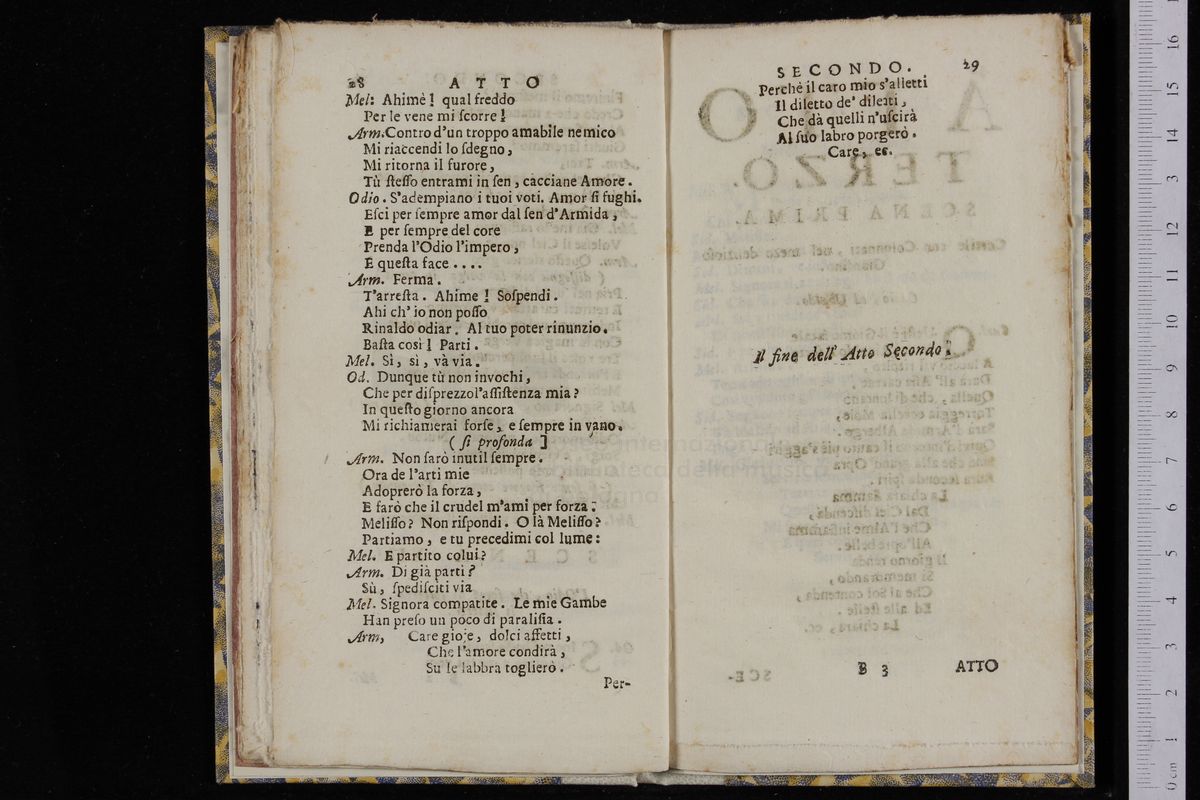 28 ATTO
Mel: Ahimè! qual freddo
Per le vene mi ſcorre!
Arm. Contro d'un troppo amabile nemico
Mi riaccendi lo ſdegno,
Mi ritorna il furore,
Tù ſteſſo entrami in ſen, cacciane Amore.
Odio. S'adempiano i tuoi voti. Amor ſi fughi.
Eſci per ſempre amor dal ſen d'Armida,
E per ſempre del core
Prenda l'Odio l'impero,
E queſta face ....
Arm. Ferma.
T'arreſta. Ahime! Soſpendi.
Ahi ch' io non poſſo
Rinaldo odiar. Al tuo poter rinunzio.
Baſta così! Parti.
Mel. Sì, sì, và via.
Od. Dunque tù non invochi,
Che per diſprezzol'aſſiſtenza mia?
In queſto giorno ancora
Mi richiamerai forſe, e ſempre in vano.
( ſi profonda ]
Arm. Non ſarò inutil ſempre.
Ora de l'arti mie
Adoprerò la forza,
E farò che il crudel m'ami per forza:
Meliſſo? Non riſpondi. O là Meliſſo?
Partiamo, e tu precedimi col lume:
Mel. E partito colui?
Arm. Di già parti?
Sù, ſpediſciti via
Mel. Signora compatite. Le mie Gambe
Han preſo un poco di paraliſia.
Arm, Care gioje, dolci affetti,
Che l'amore condirà,
Su le labbra toglierò.
Per-
SECONDO. 29
Perchè il caro mio s'alletti
Il diletto de' diletti,
Che dà quelli n'uſcirà
Al ſuo labro porgerò.
Care, ec.
Il fine dell' Atto Secondo.
B 3 ATTO